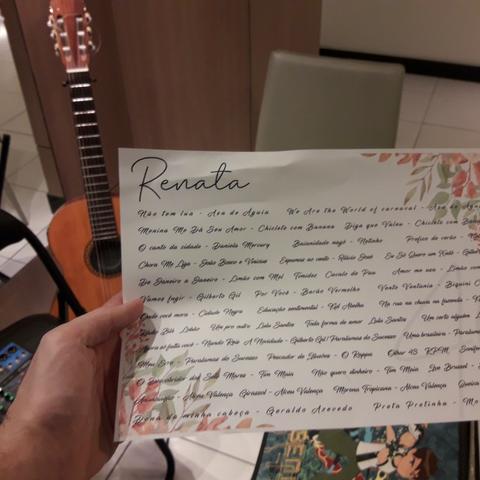 Renata
Não tem lua - Asa de Águia We Are the World of carnaval - Asa de Águia
Menina Me Dá Seu Amor - Chiclete com Banana Diga que Valeu - Chiclete com Banana
O canto da cidade - Daniela Mercury Baianidade nagô - Netinho Prefixo de verão -
Chora Me Liga - João Bosco e Vinicius Esperando na janela - Flávio José Eu Só Quero um Xodó -
De Janeiro a Janeiro - Limão com Mel Timidez Cavalo de Pau Amor meu - Limão com
Vamos fugir - Gilberto Gil Por Você - Barão Vermelho Vento Ventania - Biquini
Onde você mora - Cidade Negra Educação sentimental - Kid Abelha Na rua na chuva na fazenda -
Lulu Santos Toda forma de amor Lulu Santos Um certo alguém
falta você - Nando Reis A Novidade - Gilberto Gil/Paralamas do Sucesso Uma brasileira - Paralamas
Meu Erro - Paralamas do Sucesso Pescador de Ilusões - O Rappa Olhar 43 RPM
O Descobridor dos Sete Mares - Tim Maia Não quero dinheiro - Tim Maia
- Alceu Valença Girassol - Alceu Valença Morena Tropicana - Alceu Valença
Dona da minha cabeça - Geraldo Azevedo Preta Pretinha -